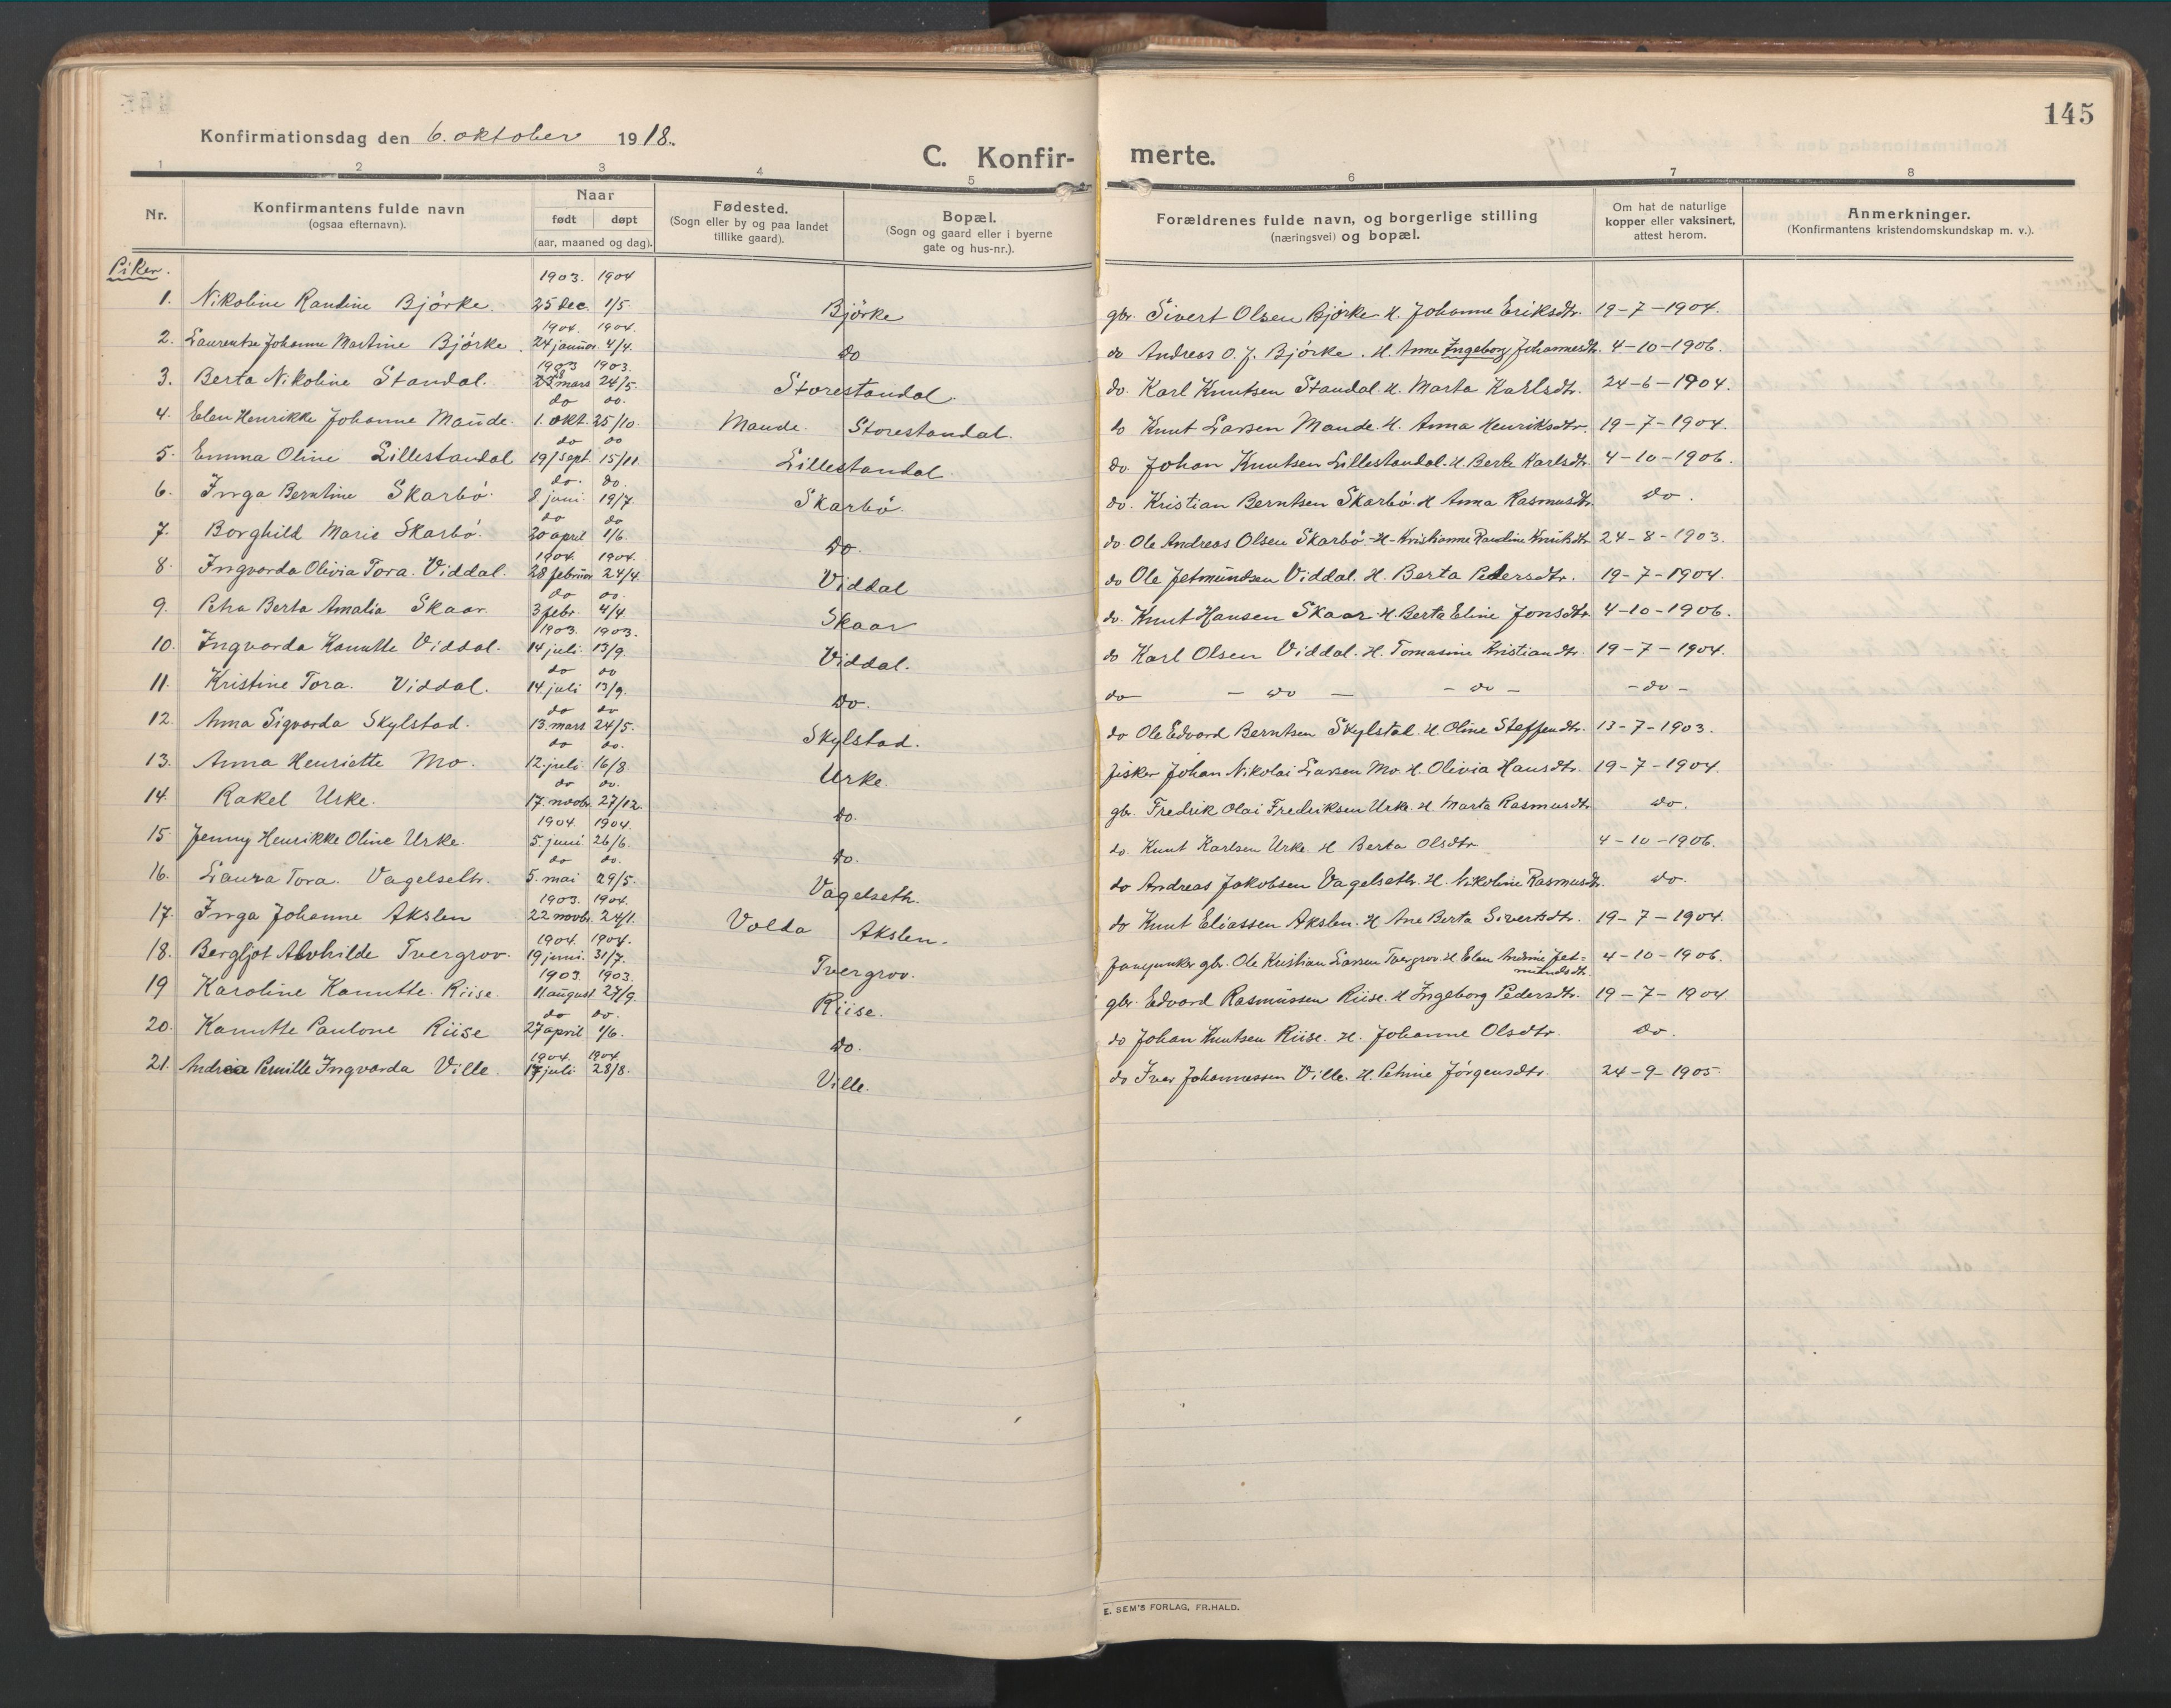 145
Konfirmationsdag den 6. oktober 1918.
C. Konfir- merte.
1 2 3 4 5 6 7 8
Nr.
Konfirmantens fulde navn
(ogsaa efternavn).
Naar
født døpt
(aar, maaned og dag).
Fødested.
(Sogn eller by og paa landet
tillike gaard).
Bopæl.
(Sogn og gaard eller i byerne
gate og hus-nr.).
Forældrenes fulde navn, og borgerlige stilling
(næringsvei) og bopæl.
Om hat de naturlige
kopper eller vaksinert,
attest herom.
Anmerkninger.
(Konfirmantens kristendomskundskap m. v.).
Piker.
1903. 1904
1. Nikoline Randine Björke. 25 dec. 1/5 Björke gbr. Sivert Olsen Björke H. Johanne Eriksdtr. 19-7-1904.
1904. 1904.
2. Laurentse Johanne Martine Björke. 24 januar 4/4. do do Andreas O. J. Björke. H. Anne Ingeborg Johannesdtr. 4-10-1906.
1903 1903.
3. Berta Nikoline Standal. mars 24/5. Storestandal. do. Karl Knutsen Standal. H. Marta Karlsdtr. 24-6-1904.
do do.
4. Elen Henrikke Johanne Maude. 1. okt. 25/10. Maude. Storestandal. do Knut Larsen Maude. H. Anna Henriksdtr. 19-7-1904.
do do
5. Emma Oline Lillestandal 19/sept. 15/11. Lillestandal do. Johan Knutsen Lillestandal. H. Berte Karlsdtr. 4-10-1906.
do. do.
6. Inga Berntine Skarbö. 8 juni. 19/7. Skarbö. do. Kristian Berntsen Skarbö. H Anna Rasmusdtr. do.
do do
7. Borghild Marie Skarbö. 20 april 1/6. do. do. Ole Andreas Olsen Skarbö. H. Kristianne Randine Knutsdtr. 24-8-1903.
1904. 1904.
8. Ingvarda Olivia Tora. Viddal. 28 februar 24/4. Viddal do Ole Jetmundsen Viddal. H. Berta Pedersdtr. 19-7-1904.
do do.
9. Petra Berta Amalia Skaar. 3 febr. 4/4. Skaar do. Knut Hansen Skaar. H. Berta Eline Jonsdtr. 4-10-1906.
1903. 1903.
10. Ingvarda Kanutte Viddal. 14 juli 13/9. Viddal. do Karl Olsen Viddal. H. Tomasine Kristiandtr. 19-7-1904.
do do
11. Kristine Tora. Viddal. 14. juli 13/9. do. do - do - - do - - do -
do do
12. Anna Sigvarda Skylstad. 13. mars 24/5. Skylstad. do Ole Edvard Berntsen Skylstad. H. Oline Steffendtr. 13-7-1903.
do do.
13. Anna Henriette Mo. 12. juli. 16/8. Urke. fisker Johan Nikolai Larsen Mo. H. Olivia Hansdtr. 19-7-1904.
do do.
14. Rakel Urke. 17. novbr. 27/12. do. gbr. Fredrik Olai Fredriksen Urke. H Marta Rasmusdtr. do.
1904. 1904.
15. Jenny Henrikke Oline Urke. 5. juni. 26/6. do. do. Knut Karlsen Urke. H Berta Olsdtr. 4-10-1906.
do do.
16. Laura Tora. Vagelseth. 5. mai 29/5. Vagelseth. do Andreas Jakobsen Vagelseth. H. Nikoline Rasmusdtr. do.
1903. 1904.
17. Inga Johanne Akslen 22 novbr. 24/1. Volda Akslen. do Knut Eliassen Akslen. H Ane Berta Sivertsdtr. 19-7-1904.
1904. 1904.
18. Bergljot Alvhilde Tvergrov. 19 juni. 31/7. Tvergrov. gbr. Ole Kristian Larsen Tvergrov H Elen Andrine Jet-
mundsdtr. 4-10-1906.
1903. 1903.
19 Karoline Kanutte. Riise. 11. august 27/9. Riise. gbr. Edvard Rasmussen Riise. H Ingeborg Pedersdtr. 19-7-1904
do do.
20. Kanutte Paulone Riise 27 april 1/6. do. do Johan Knutsen Riise. H. Johanne Olsdtr. do.
1904. 1904
21. Andrea Pernille Ingvarda Ville. 17 juli 28/8. Ville. do Iver Johannessen Ville. H. Petrine Jörgensdtr. 24-9-1905.
E. SEM'S FORLAG, FR.HALD.